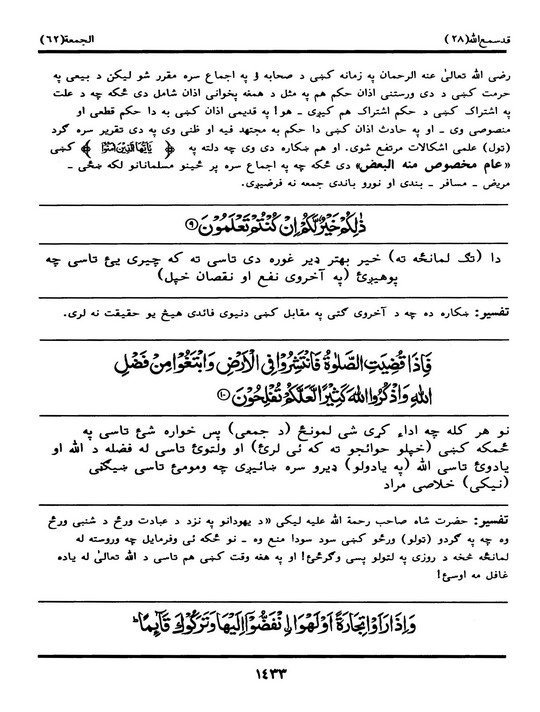 قدسمع الله(۲۸)
الجمعة(۶۲)
رضی الله تعالیٰ عنه الرحمان په زمانه کښی د صحابه ؤ په اجماع سره مقرر شو لیکن د بیعی په
حرمت کښی د دی ورستنی اذان حکم هم په مثل د همغه پخوانی اذان شامل دی څکه چه د علت
په اشتراک کښی د حکم اشتراک هم کیږی ـ هو! په قدیمی اذان کښی به دا حکم قطعی او
منصوصی وی ـ او په حادث اذان کښی دا حکم به مجتهد فیه او ظنی وی په دی تقریر سره گرد
(تول) علمی اشکالات مرتفع شوی. او هم ښکاره دی وی چه دلته په ﴿ يٰٓاَيُّهَا الَّذِيْنَ اٰمَنُوْٓا ﴾ کښی
«عام مخصوص منه البعض» دی څکه چه په اجماع سره پر ځینو مسلمانانو لکه ښځی ـ
مریض ـ مسافر ـ بندی او نورو باندی جمعه نه فرضیږی.
ذٰلِكُمْ خَيْرٌ لَّكُمْ اِنْ كُنْتُمْ تَعْلَمُوْنَ ۹
دا (تگ لمانځه ته) خیر بهتر ډیر غوره دی تاسی ته که چیری یئ تاسی چه
پوهیږئ (په آخروی نفع او نقصان خپل)
تفسیر: ښکاره ده چه د آخروی گتی په مقابل کښی دنیوی فائدی هیڅ یو حقیقت نه لری.
فَاِذَا قُضِيَتِ الصَّلٰوةُ فَانْتَشِرُوْا فِي الْاَرْضِ وَابْتَغُوْا مِنْ فَضْلِ
اللّٰهِ وَاذْكُرُوا اللّٰهَ كَثِيْرًا لَّعَلَّكُمْ تُفْلِحُوْنَ ۱۰
نو هر کله چه اداء کړی شی لمونځ (د جمعی) پس خواره شئ تاسی په
ځمکه کښی (خپلو حوائجو ته که ئی لرئ) او ولتوئ تاسی له فضله د الله او
یادوئ تاسی الله (په یادولو) ډیرو سره ښائیږی چه ومومئ تاسی ښیگڼی
(نیکی) خلاصی مراد
تفسیر: حضرت شاه صاحب رحمة الله علیه لیکی «د یهودانو په نزد د عبادت ورځ د شنبی ورځ
وه چه په گردو (تولو) ورځو کښی سود سودا منع وه ـ نو ځکه ئی وفرمایل چه وروسته له
لمانځه څخه د روزی په لتولو پسی وگرځئ! او په هغه وقت کښی هم تاسی د الله تعالیٰ له یاده
غافل مه اوسئ!
وَاِذَا رَاَوْا تِجَارَةً اَوْ لَهْوَا ۨ انْفَضُّوْٓا اِلَيْهَا وَتَرَكُوْكَ قَآئِمًا ؕ
۱٤۳۳